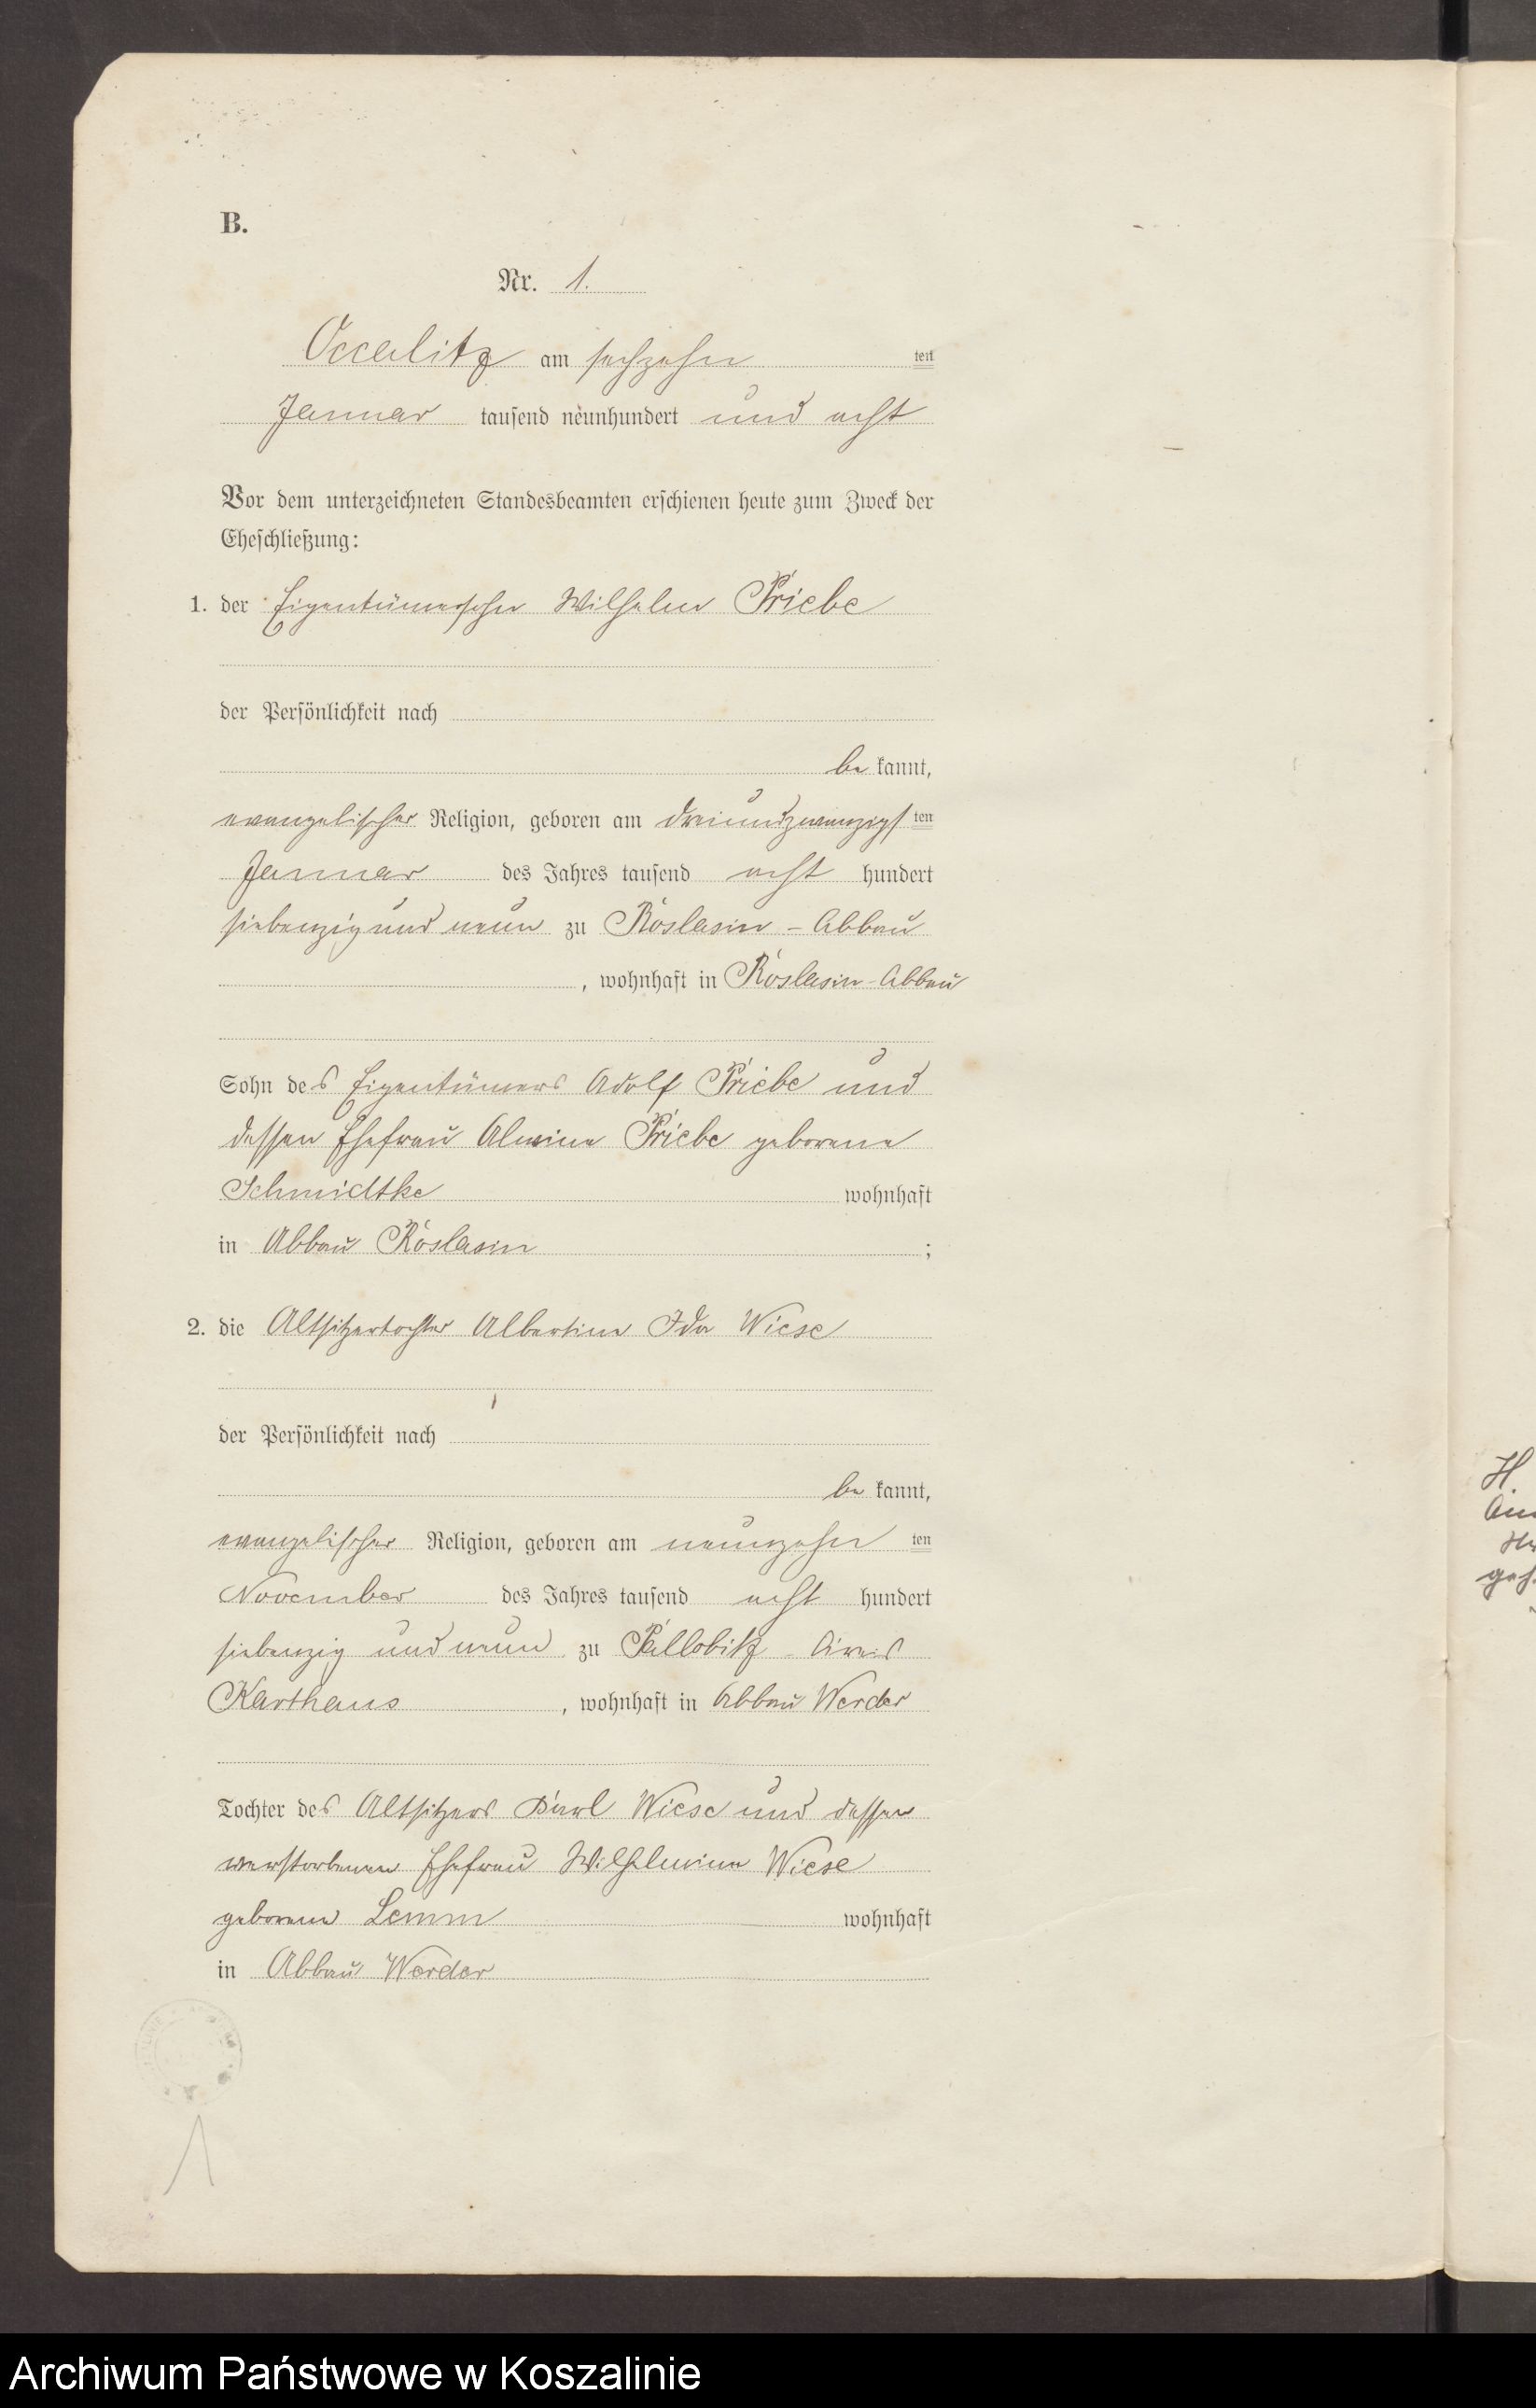 B.
Nr. 1.
Occalitz am sechzehn ten
Januar tausend neunhundert und acht
Vor dem unterzeichneten Standesbeamten erschienen heute zum Zweck der
Eheschließung:
1. der Eigentümersohn Wilhelm Priebe
der Persönlichkeit nach
be kannt,
evangelischer Religion, geboren am dreiundzwanzigs ten
Januar des Jahres tausend acht hundert
siebenzig und neun zu Roslasin - Abbau
, wohnhaft in Roslasin - Abbau
Sohn des Eigentümers Adolf Priebe und
dessen Ehefrau Alwine Priebe geborene
Schmidtke wohnhaft
in Abbau Roslasin ;
2. die Altsitzertochter Albertine Ida Wiese
der Persönlichkeit nach
be kannt,
evangelischer Religion, geboren am neunzehn ten
November des Jahres tausend acht hundert
siebenzig und neun zu Kreis
Karthaus , wohnhaft in Abbau Werder
Tochter des Altsitzers Karl Wiese und dessen
verstorbenen Ehefrau Wilhelmine Wiese
geborene Lemm wohnhaft
in Abbau Werder
H.
Archiwum Państwowe w Koszalinie